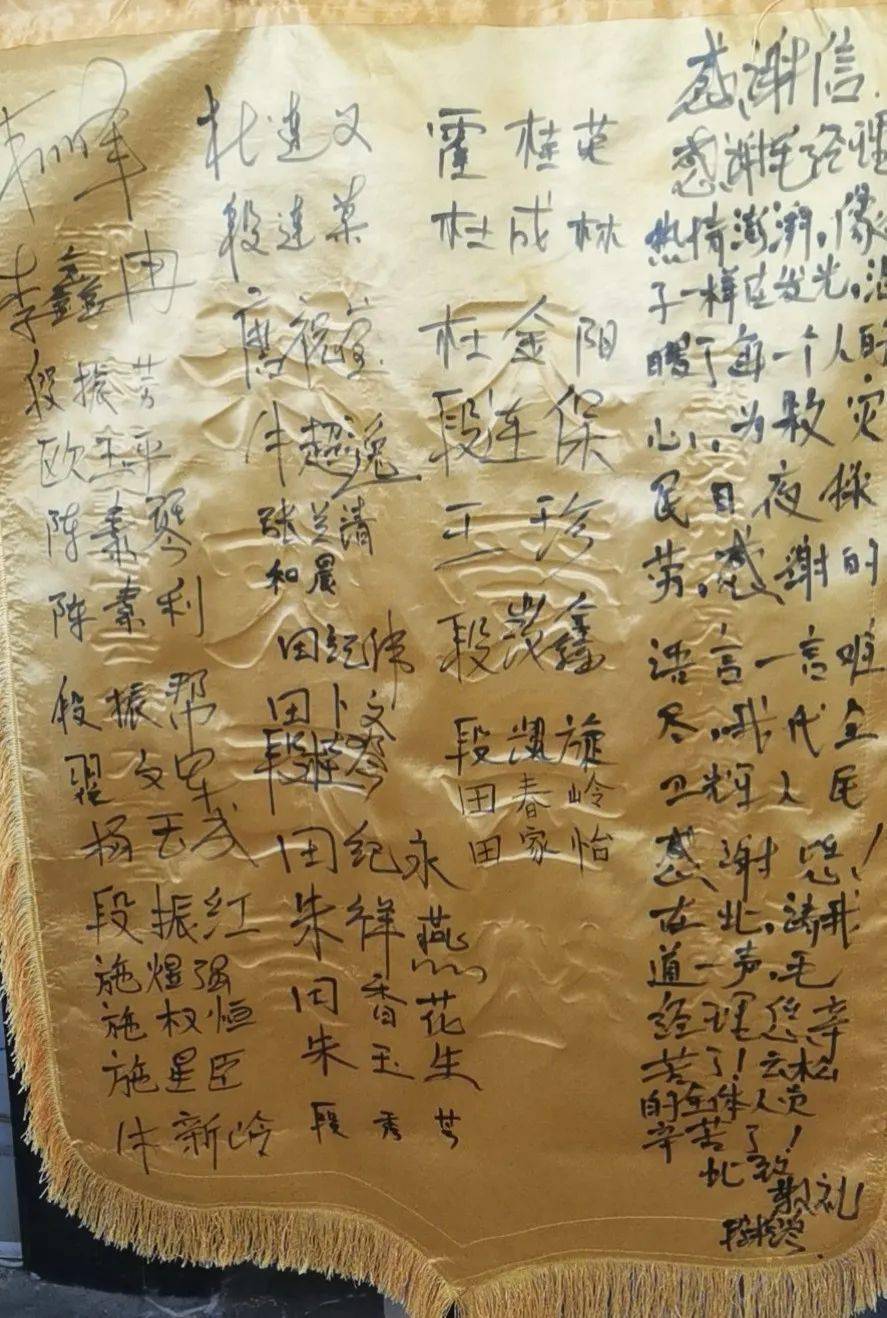 感谢信
感谢毛经理
热情澎湃,像
子一样在发光,温
暖了每一个人的
心,为救灾
民日夜操
劳,感谢的
语言一言难
尽,我代全
卫辉人民
感谢您!
在此,请我
道一声,毛
经理您辛
苦了!云松
的全体人员
辛苦了!
此致
敬礼
霍桂英
杜成林
杜金阳
段连保
王珍
段茂鑫
段淇旋
田春岭
田家怡
杜连义
段连菜
祝莹
牛超逸
张兰清
和晨
田纪伟
田卜文
段
田纪永
朱祥燕
田香花
朱玉生
段秀芳
李鑫冉
段振芳
欧玉平
陈素琴
陈素利
段振帮
文
杨玉成
段振红
施煜强
施权恒
施星臣
牛新岭